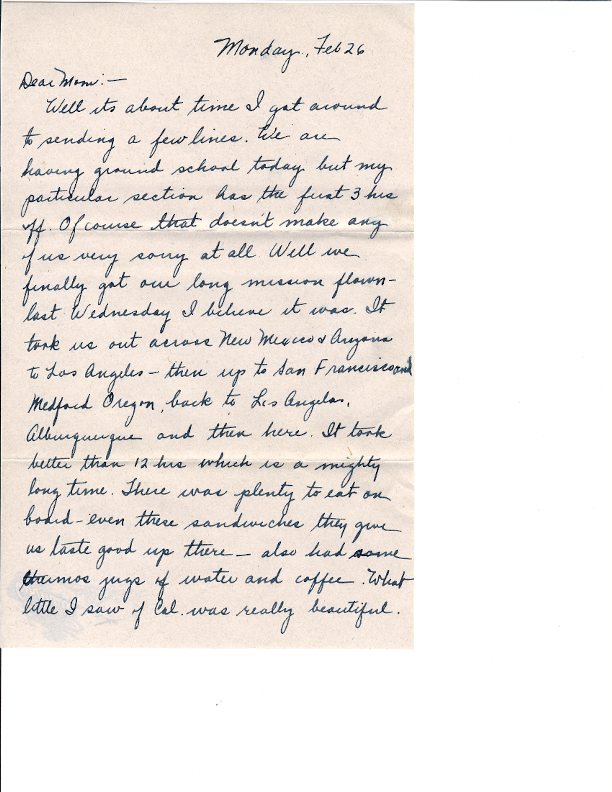 Monday, Feb 26
Dear Mom:—
Well its about time I got around
to sending a few lines. We are
having ground school today but my
particular section has the first 3 hrs
off. Of course that doesn't make any
of us very sorry at all. Well we
finally got our long mission flown-
last Wednesday I believe it was. It
took us out across New Mexico & Arizona
to Los Angeles - then up to San Francisco and
Medford Oregon, back to Los Angelos,
Alburquerque and then here. It took
better than 12 hrs which is a mighty
long time. There was plenty to eat on
board - even these sandwiches they give
us taste good up there — also had some
thermos jugs of water and coffee. What
little I saw of Cal. was really beautiful.